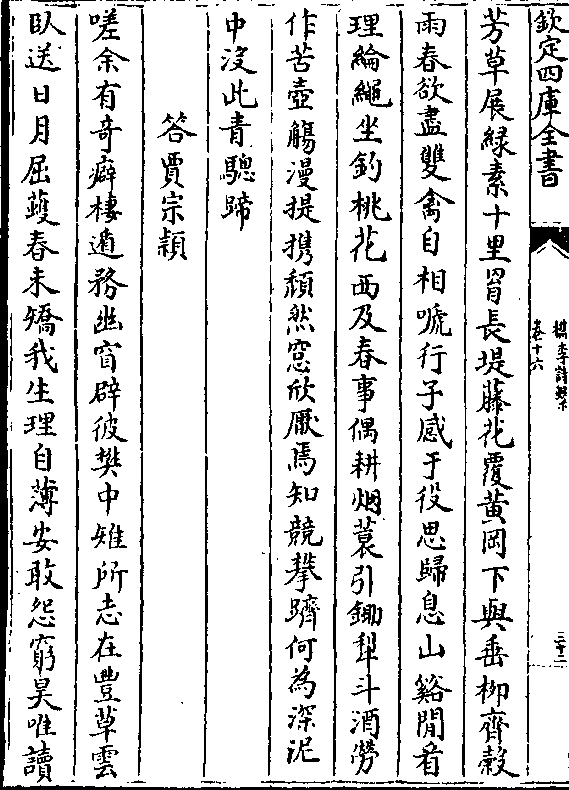 欽定四庫全書
檇李詩繫
卷十六
三十二
芳草展緑素十里罥長堤藤花覆黄岡下與垂栁齊榖
雨春欲盡雙禽自相嗁行子感于役思歸息山谿閒看
理綸繩坐釣桃花西及春事偶耕烟蓑引鋤犂斗酒勞
作苦壺觴漫提携頽然窓欣厭焉知競攀躋何為深泥
中沒此青驄蹄
答賈宗穎
嗟余有奇癖棲遁務幽窅辟彼樊中雉所志在豐草雲
臥送日月屈蠖春未矯我生理自薄安敢怨窮昊唯讀